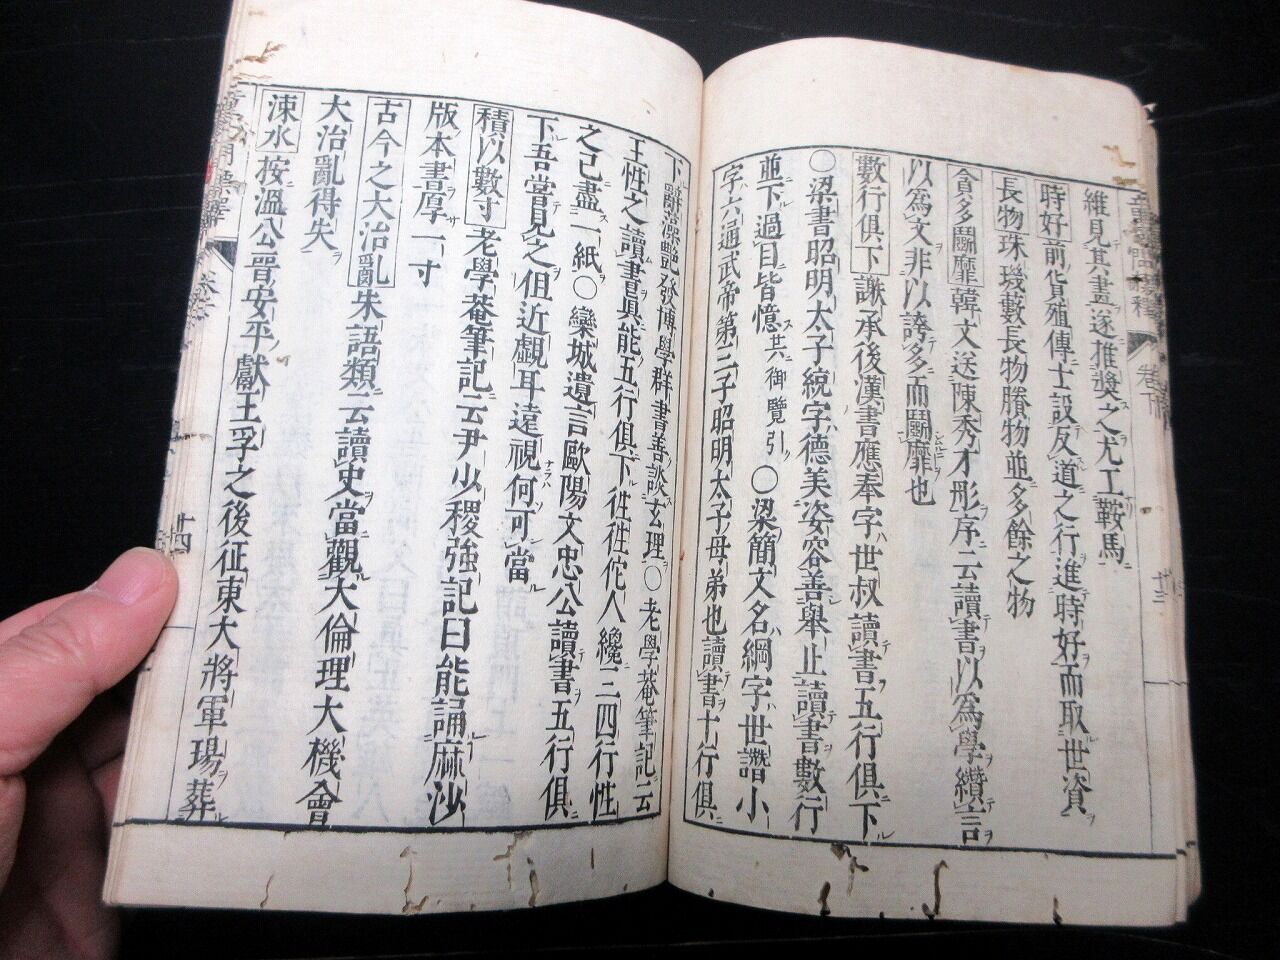 維見其畫遂推奬之尤工鞍馬
時好前貨殖傳士設友道之行進時好而取世資
長物珠璣數長物賸物並多餘之物
貪多鬭靡韓文送陳秀才彤序云讀書以爲學纘言
以爲文非以誇多而鬭靡也
數行俱下謝承後漢書應奉字世叔讀書五行俱下
○梁書昭明太子統字德美姿容善舉止讀書數行
並下過目皆憶其御覽引○梁簡文名綱字世讚小
字六通武帝第三子昭明太子母弟也讀書十行俱
下辭藻艷發博學群書善談玄理○老學菴筆記云
王性之讀書眞能五行俱下往往佗人纔三四行性
之已盡一紙○欒城遺言歐陽文忠公讀書五行俱
下吾嘗見之但近覷耳遠視何可當
積以數寸老學菴筆記云尹少稷強記日能誦麻沙
版本書厚一寸
古今之大治亂朱語類云讀史當觀大倫理大機會
大治亂得失
涑水按溫公晉安平獻王孚之後征東大將軍瑒葬
卷下
十四